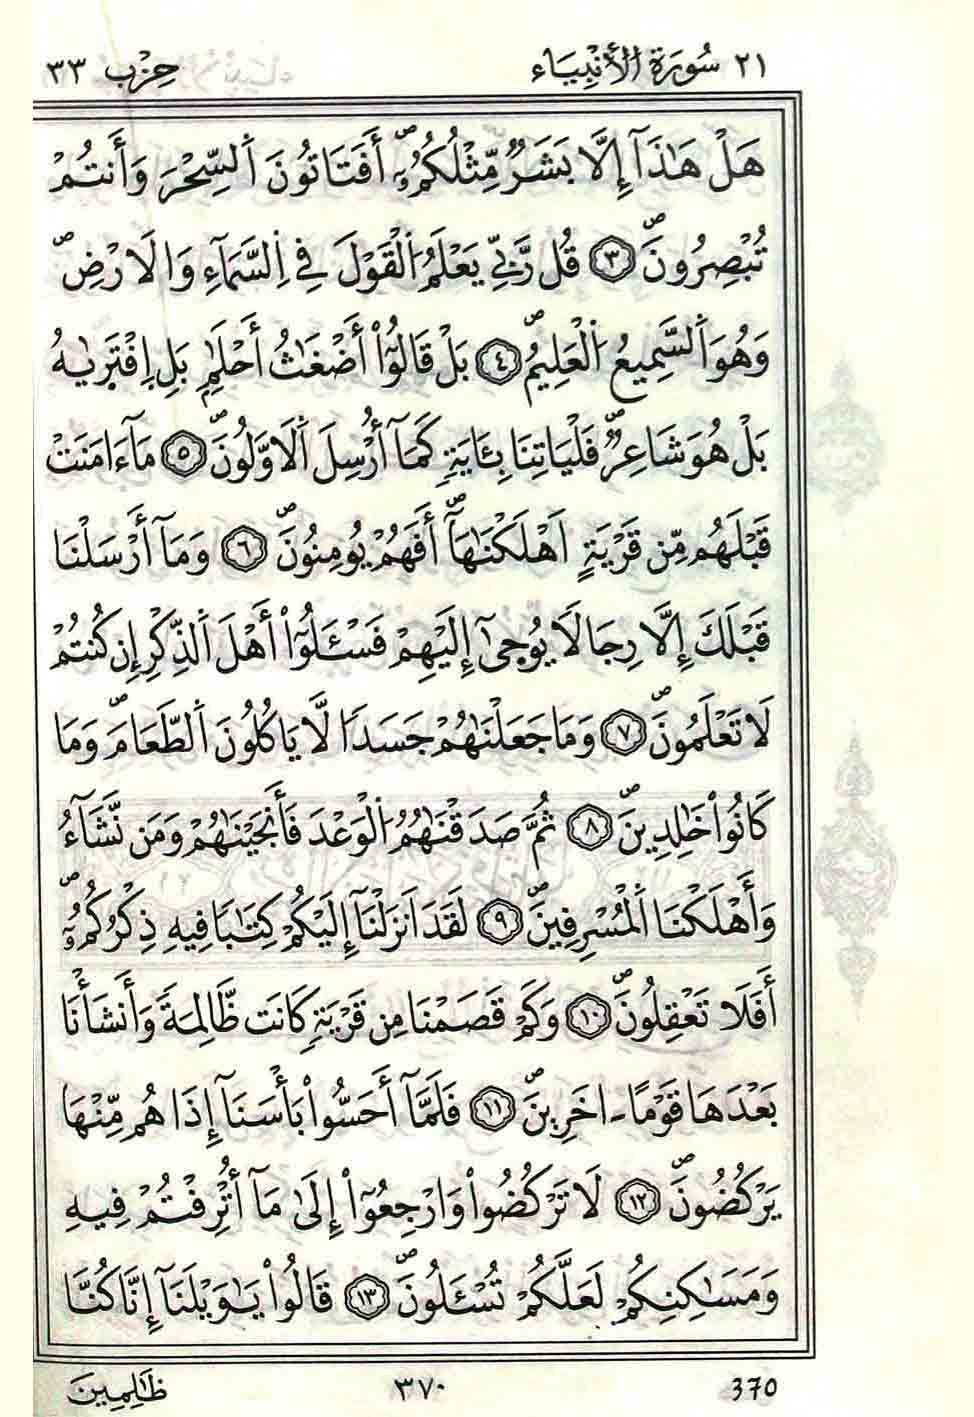 ٢١ سُورَةُ الْأَنْبِيَاء حِزْب ٣٣
هَلْ هَٰذَآ إِلَّا بَشَرٌ مِّثْلُكُمُۥٓ أَفَتَاتُونَ اَ۬لسِّحْرَ وَأَنتُمْ
تُبْصِرُونَۖ ٣ قُل رَّبِّے يَعْلَمُ اُ۬لْقَوْلَ فِے اِ۬لسَّمَآءِ وَالَارْضِۖ
وَهُوَ اَ۬لسَّمِيعُ اُ۬لْعَلِيمُۖ ٤ بَلْ قَالُوٓاْ أَضْغَٰثُ أَحْلَٰمِۢ بَلِ اِ۪فْتَر۪يٰهُ
بَلْ هُوَ شَاعِرٞۖ فَلْيَاتِنَا بِـَٔايَةٖ كَمَآ أُرْسِلَ اَ۬لَاوَّلُونَۖ ٥ مَآ ءَامَنَتْ
قَبْلَهُم مِّن قَرْيَةٍ اَهْلَكْنَٰهَآۖ أَفَهُمْ يُومِنُونَۖ ٦ وَمَآ أَرْسَلْنَا
قَبْلَكَ إِلَّا رِجَالاٗ يُوح۪يٰٓ إِلَيْهِمْ فَسْـَٔلُوٓاْ أَهْلَ اَ۬لذِّكْرِ إِن كُنتُمْ
لَا تَعْلَمُونَۖ ٧ وَمَا جَعَلْنَٰهُمْ جَسَداٗ لَّا يَاكُلُونَ اَ۬لطَّعَامَۖ وَمَا
كَانُواْ خَٰلِدِينَۖ ٨ ثُمَّ صَدَقْنَٰهُمُ اُ۬لْوَعْدَ فَأَنجَيْنَٰهُمْ وَمَن نَّشَآءُ
وَأَهْلَكْنَا اَ۬لْمُسْرِفِينَۖ ٩ لَقَدَ اَنزَلْنَآ إِلَيْكُمْ كِتَٰباٗ فِيهِ ذِكْرُكُمُۥٓۖ
أَفَلَا تَعْقِلُونَۖ ١٠ وَكَمْ قَصَمْنَا مِن قَرْيَةٖ كَانَت ظَّالِمَةٗ وَأَنشَأْنَا
بَعْدَهَا قَوْماً ـ اخَرِينَۖ ١١ فَلَمَّآ أَحَسُّواْ بَأْسَنَآ إِذَا هُم مِّنْهَا
يَرْكُضُونَۖ ١٢ لَا تَرْكُضُواْ وَارْجِعُوٓاْ إِلَىٰ مَآ أُتْرِفْتُمْ فِيهِ
وَمَسَٰكِنِكُمْ لَعَلَّكُمْ تُسْـَٔلُونَۖ ١٣ قَالُواْ يَٰوَيْلَنَآ إِنَّا كُنَّا
ظَٰلِمِينَ ٣٧٠ 370